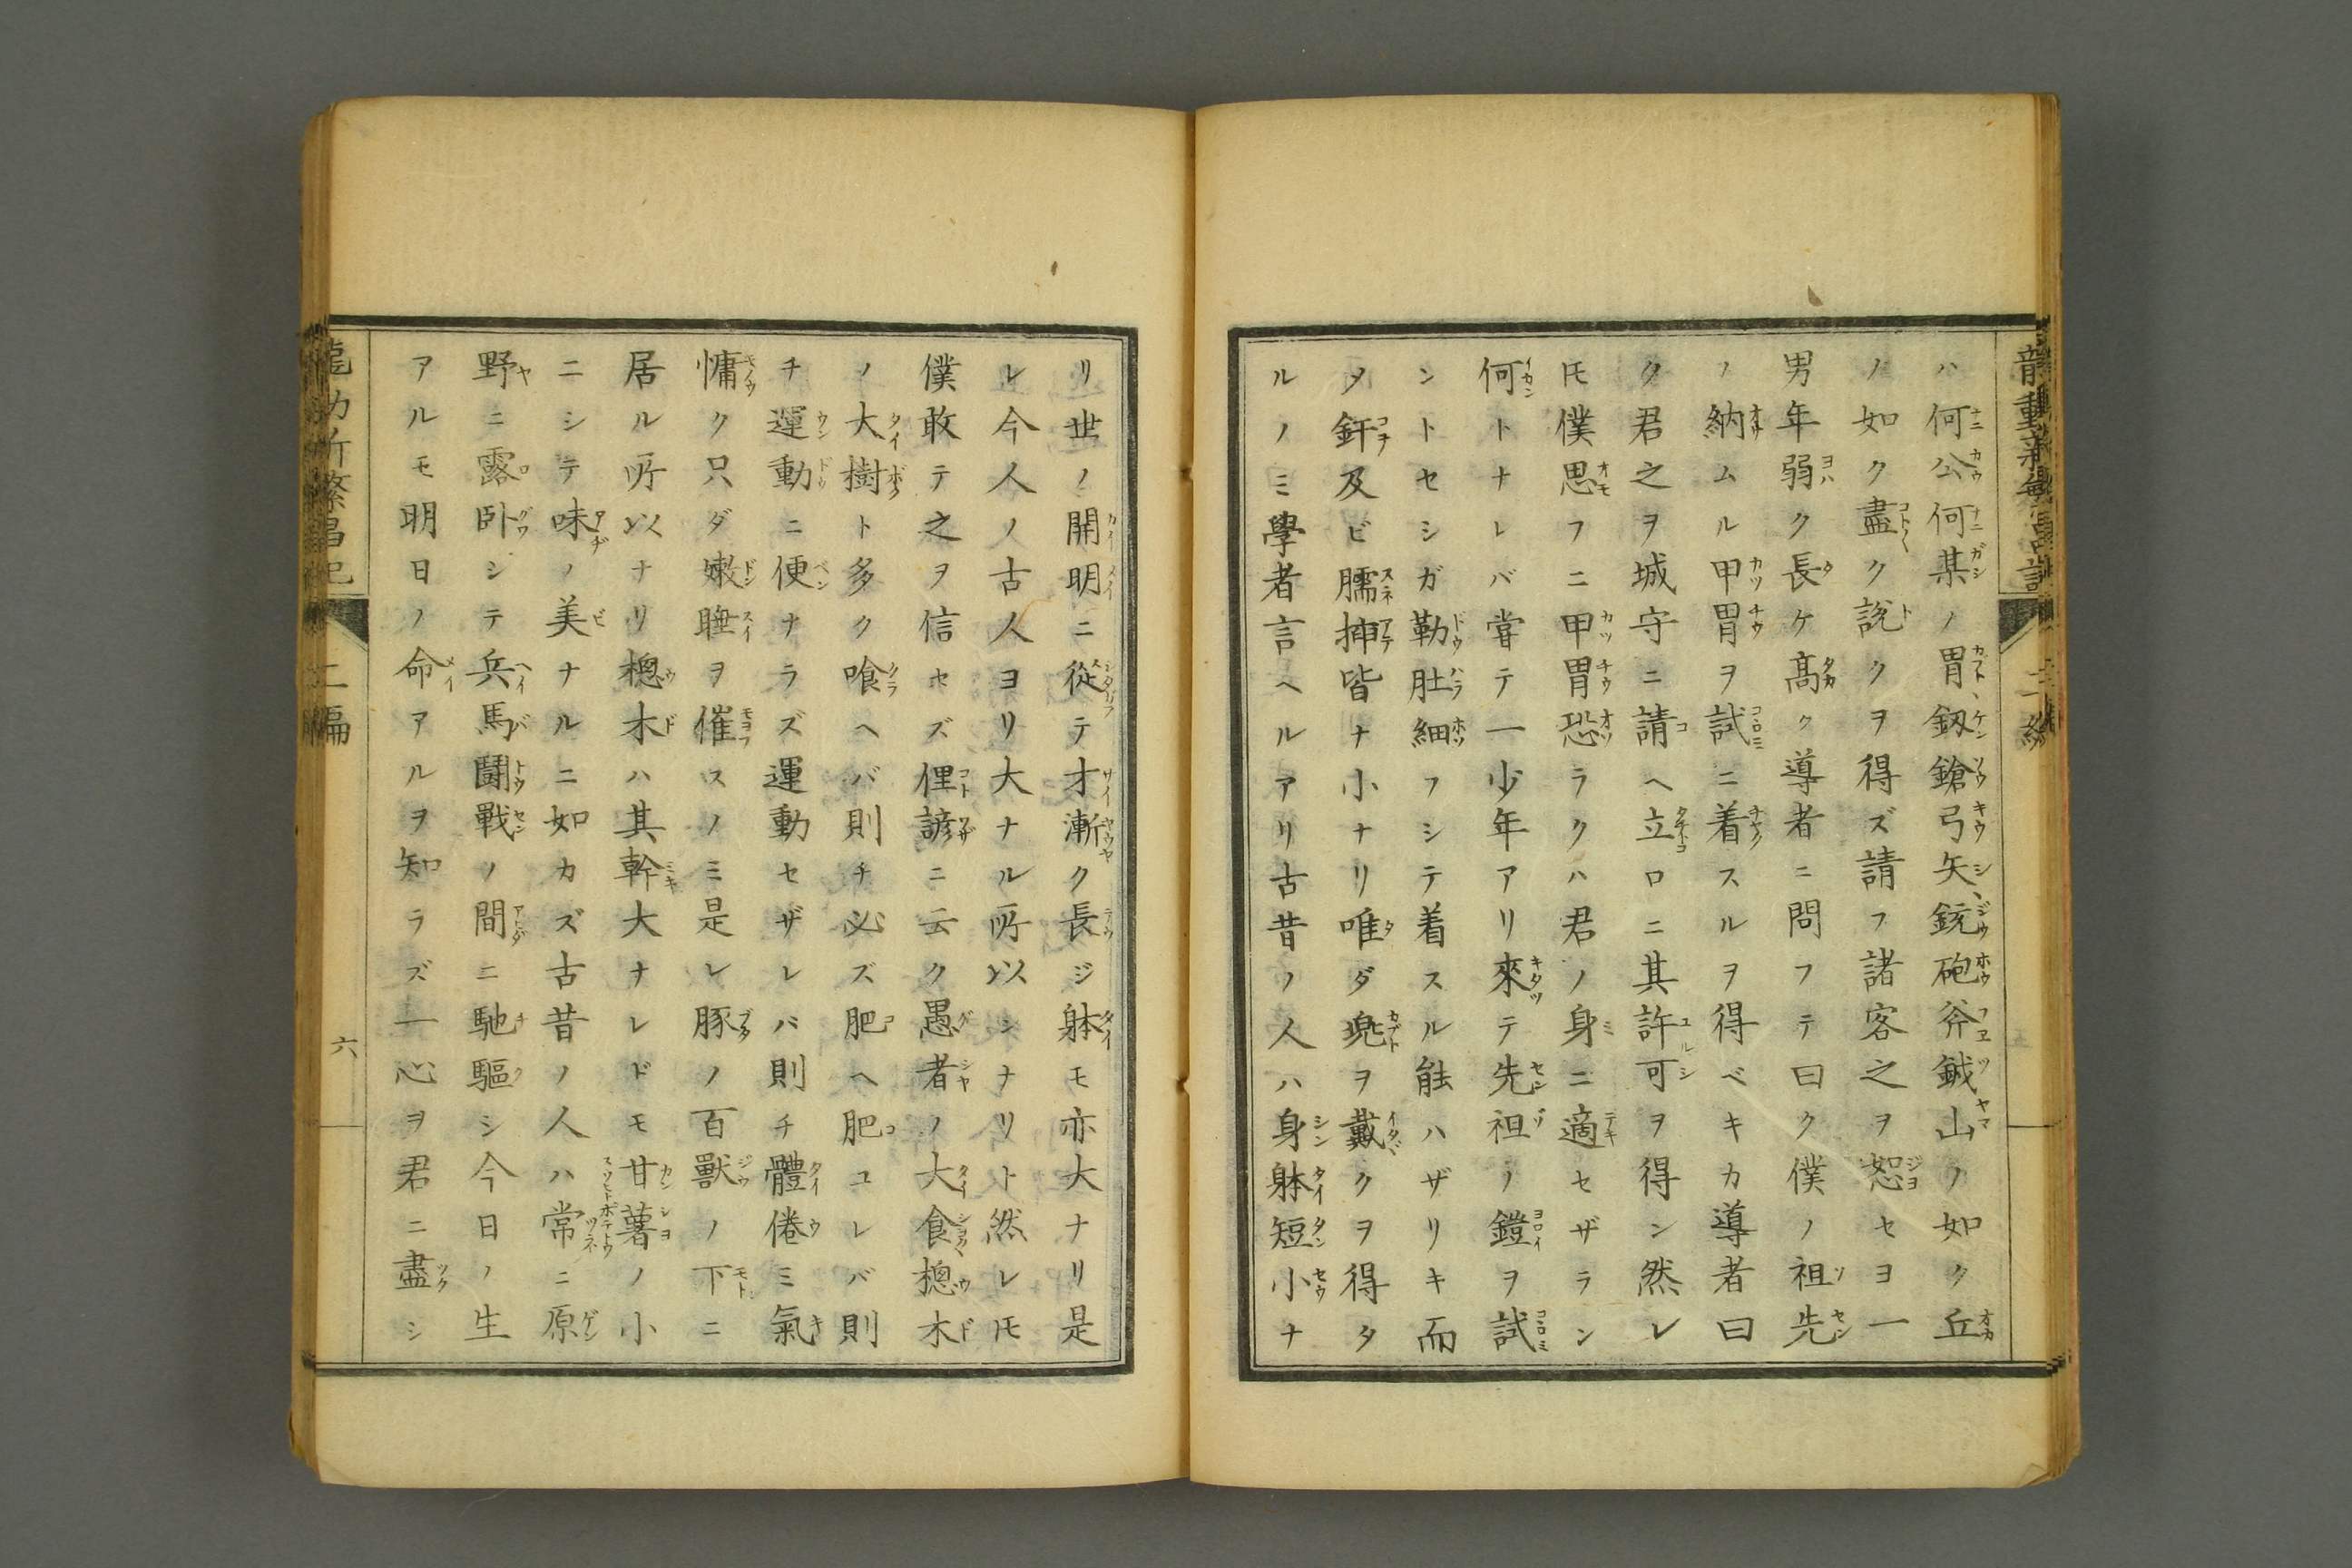 ハ何公何某ノ胃釼鎗弓矢銃砲斧鉞山ノ如ク丘
ノ如ク盡ク説クヲ得ズ請フ諸客之ヲ恕セヨ一
男年弱ク長ケ髙ク導者ニ問フテ曰ク僕ノ祖先
ノ納ムル甲胃ヲ試ニ着スルヲ得ベキカ導者曰
ク君之ヲ城守ニ請ヘ立ロニ其許可ヲ得ン然レ
𪜈僕思フニ甲胃恐ラクハ君ノ身ニ適セザラン
何トナレバ甞テ一少年アリ來テ先祖ノ鎧ヲ試
ントセシガ勒肚細フシテ着スル能ハザリキ而
メ釬及ビ臑𢰅皆ナ小ナリ唯ダ兠ヲ戴クヲ得タ
ルノミ學者言ヘルアリ古昔ノ人ハ身躰短小ナ
リ世ノ開明ニ從テ才漸ク長ジ躰モ亦大ナリ是
レ今人ノ古人ヨリ大ナル所以ンナリト然レ𪜈
僕敢テ之ヲ信セズ俚諺ニ云ク愚者ノ大食樬木
ノ大樹ト多ク喰ヘバ則チ必ズ肥ヘ肥ユレバ則
チ運動ニ便ナラズ運動セザレバ則チ體倦ミ氣
慵ク只ダ嫩睡ヲ催スノミ是レ豚ノ百獸ノ下ニ
居ル所以ナリ樬木ハ其幹大ナレドモ甘薯ノ小
ニシテ味ノ美ナルニ如カズ古昔ノ人ハ常ニ原
野ニ露卧シテ兵馬鬪戰ノ間ニ馳驅シ今日ノ生
アルモ明日ノ命アルヲ知ラズ一心ヲ君ニ盡シ
二編
六